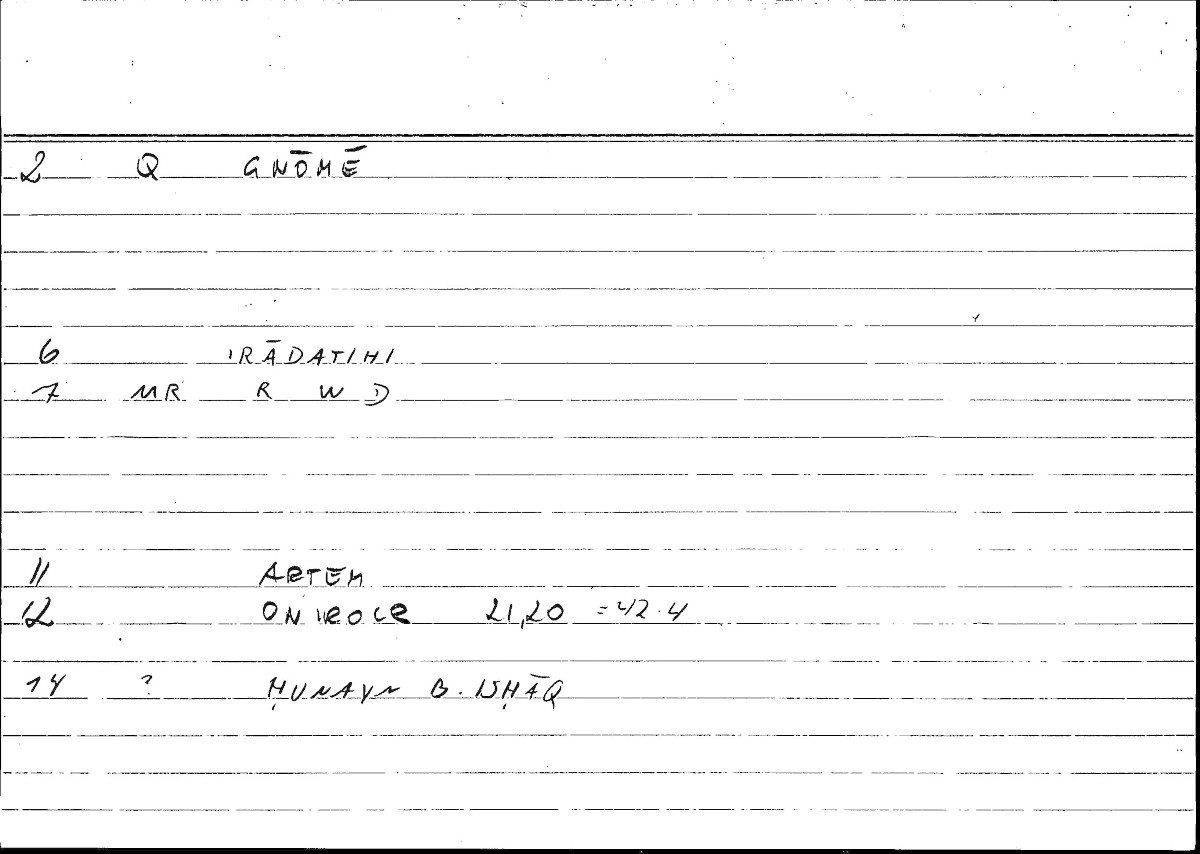 2 Q GNŌMĒ
6 IRĀDATIHI
7 MR R W D
11 ARTEM
12 ONIROCR 21,20 = 42.4
14 ? ḤUNAYN B. ISḤĀQ